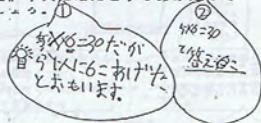 ①
5×6=30だが
5人に6こあげた
とおもいます。
②
5×6=30
答え30こ